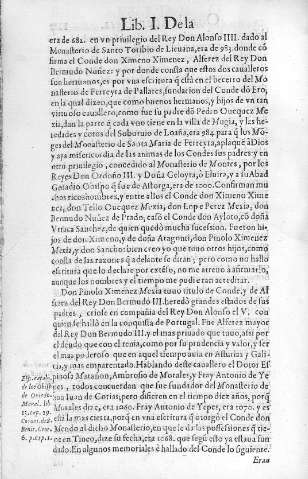 Lib. I. De la
era de 982. en vn priuilegio del Rey Don Alonso IIII. dado al
Monasterio de Santo Toribio de Lieuana, era de 983. donde cõ
firma el Conde don Ximeno Ximenez, Alferez del Rey Don
Bermudo Nuñez: y por donde consta que estos dos caualleros
son hermanos, es por vna escritura q̃ està en el becerro del Mo
nasterio de Ferreyra de Pallares, fundacion del Conde dõ Ero,
en la qual dizen, que como buenos hermanos, y hijos de vn tan
virtuoso cauallero, como fue su padre dõ Pedro Ouequez Me
xia, dan la parte q̃ cada vno tiene en la villa de Mugia, y las he
redades y cotos del Soburuio de Loaña, era 984. para q̃ los Mõ
ges del Monasterio de Santa Maria de Ferreyra, aplaquẽ à Dios
y aya misericordia de las animas de los Condes sus padres: y en
otro priuilegio, concedido al Monasterio de por los
Reyes Don Ordoño III. y Doña Geloyra, o Eluira, y a su Abad
Genadio Obispo q̃ fue de Astorga, era de 1000. Confirman mu
chos ricoshombres, y entre ellos el Conde don Ximeno Xime
nez, don Tello Ouequez Mexia, don Lope Perez Mexia, don
Bermudo Nuñez de Prado, casò el Conde don Ayloto, cõ doña
Vrraca Sanchez, de quien quedò mucha sucession. Fueron hi
jos de don Ximeno, y de doña Aragunti, don Pinolo Ximenez
Mexia, y don Sancho: bien creo yo que tuuo otros hijos, como
consta de las razones q̃ adelante se diran; pero como no hallo
escritura que lo declare por extẽso, no me atreuo à afirmarlo,
aunque los nombres y el tiempo me pudieran acreditar.
Don Pinolo Ximenez Mexia tuuo titulo de Conde, y de Al
ferez del Rey Don Bermudo III. heredò grandes estados de sus
padres, criose en compañia del Rey Don Alonso el V. con
quien se hallò en la conquista de Portugal. Fue Alferez mayor
del Rey Don Bermudo III. y el mas priuado que tuuo, assi por
el deudo que con el tenia, como por su prudencia y valor, y ser
el mas poderoso que en aquel tiempo auia en Asturias y Gali-
cia, y mas emparentado. Hablando deste cauallero el Dotor Es
pinosa Ambrosio de Morales, y Fray Antonio de Ye
pes, todos concuerdan que fue fundador del Monasterio de
san Iuan de Corias, pero difieren en el tiempo diez años, porq̃
Morales dize, era 1060. Fray Antonio de Yepes, era 1070. y es
està la mas cierta, porq̃ en vna escritura q̃ otorgò el Conde don
Mendo al dicho Monasterio, en que le da las possessiones q̃ tie-
ne en Tineo, dize su fecha, era 1068. que segũ esto ya estaua fun
dado. En algunos memoriales è hallado del Conde lo siguiente.
Eran
de los Obispos
de Ouiedo.
13. cap. 29.
6. p. cap. 1.